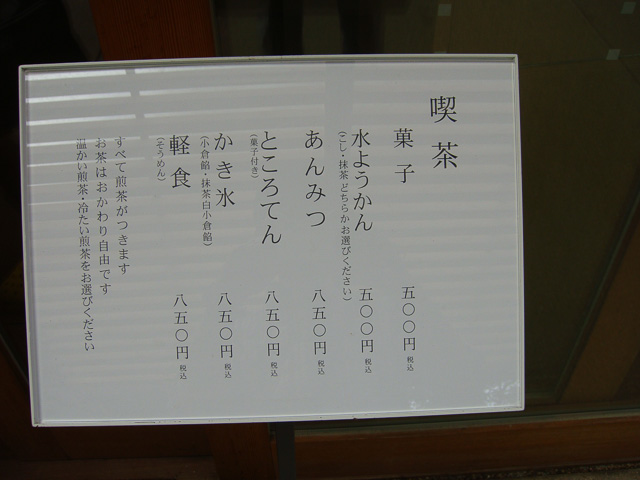 喫茶
菓子 五〇〇円 税込
水ようかん 五〇〇円 税込
(こし・抹茶どちらかお選びください)
あんみつ 八五〇円 税込
ところてん 八五〇円 税込
(菓子付き)
かき氷 八五〇円 税込
(小倉餡・抹茶白小倉餡)
軽食 八五〇円 税込
(そうめん)
すべて煎茶がつきます
お茶はおかわり自由です
温かい煎茶・冷たい煎茶をお選びください